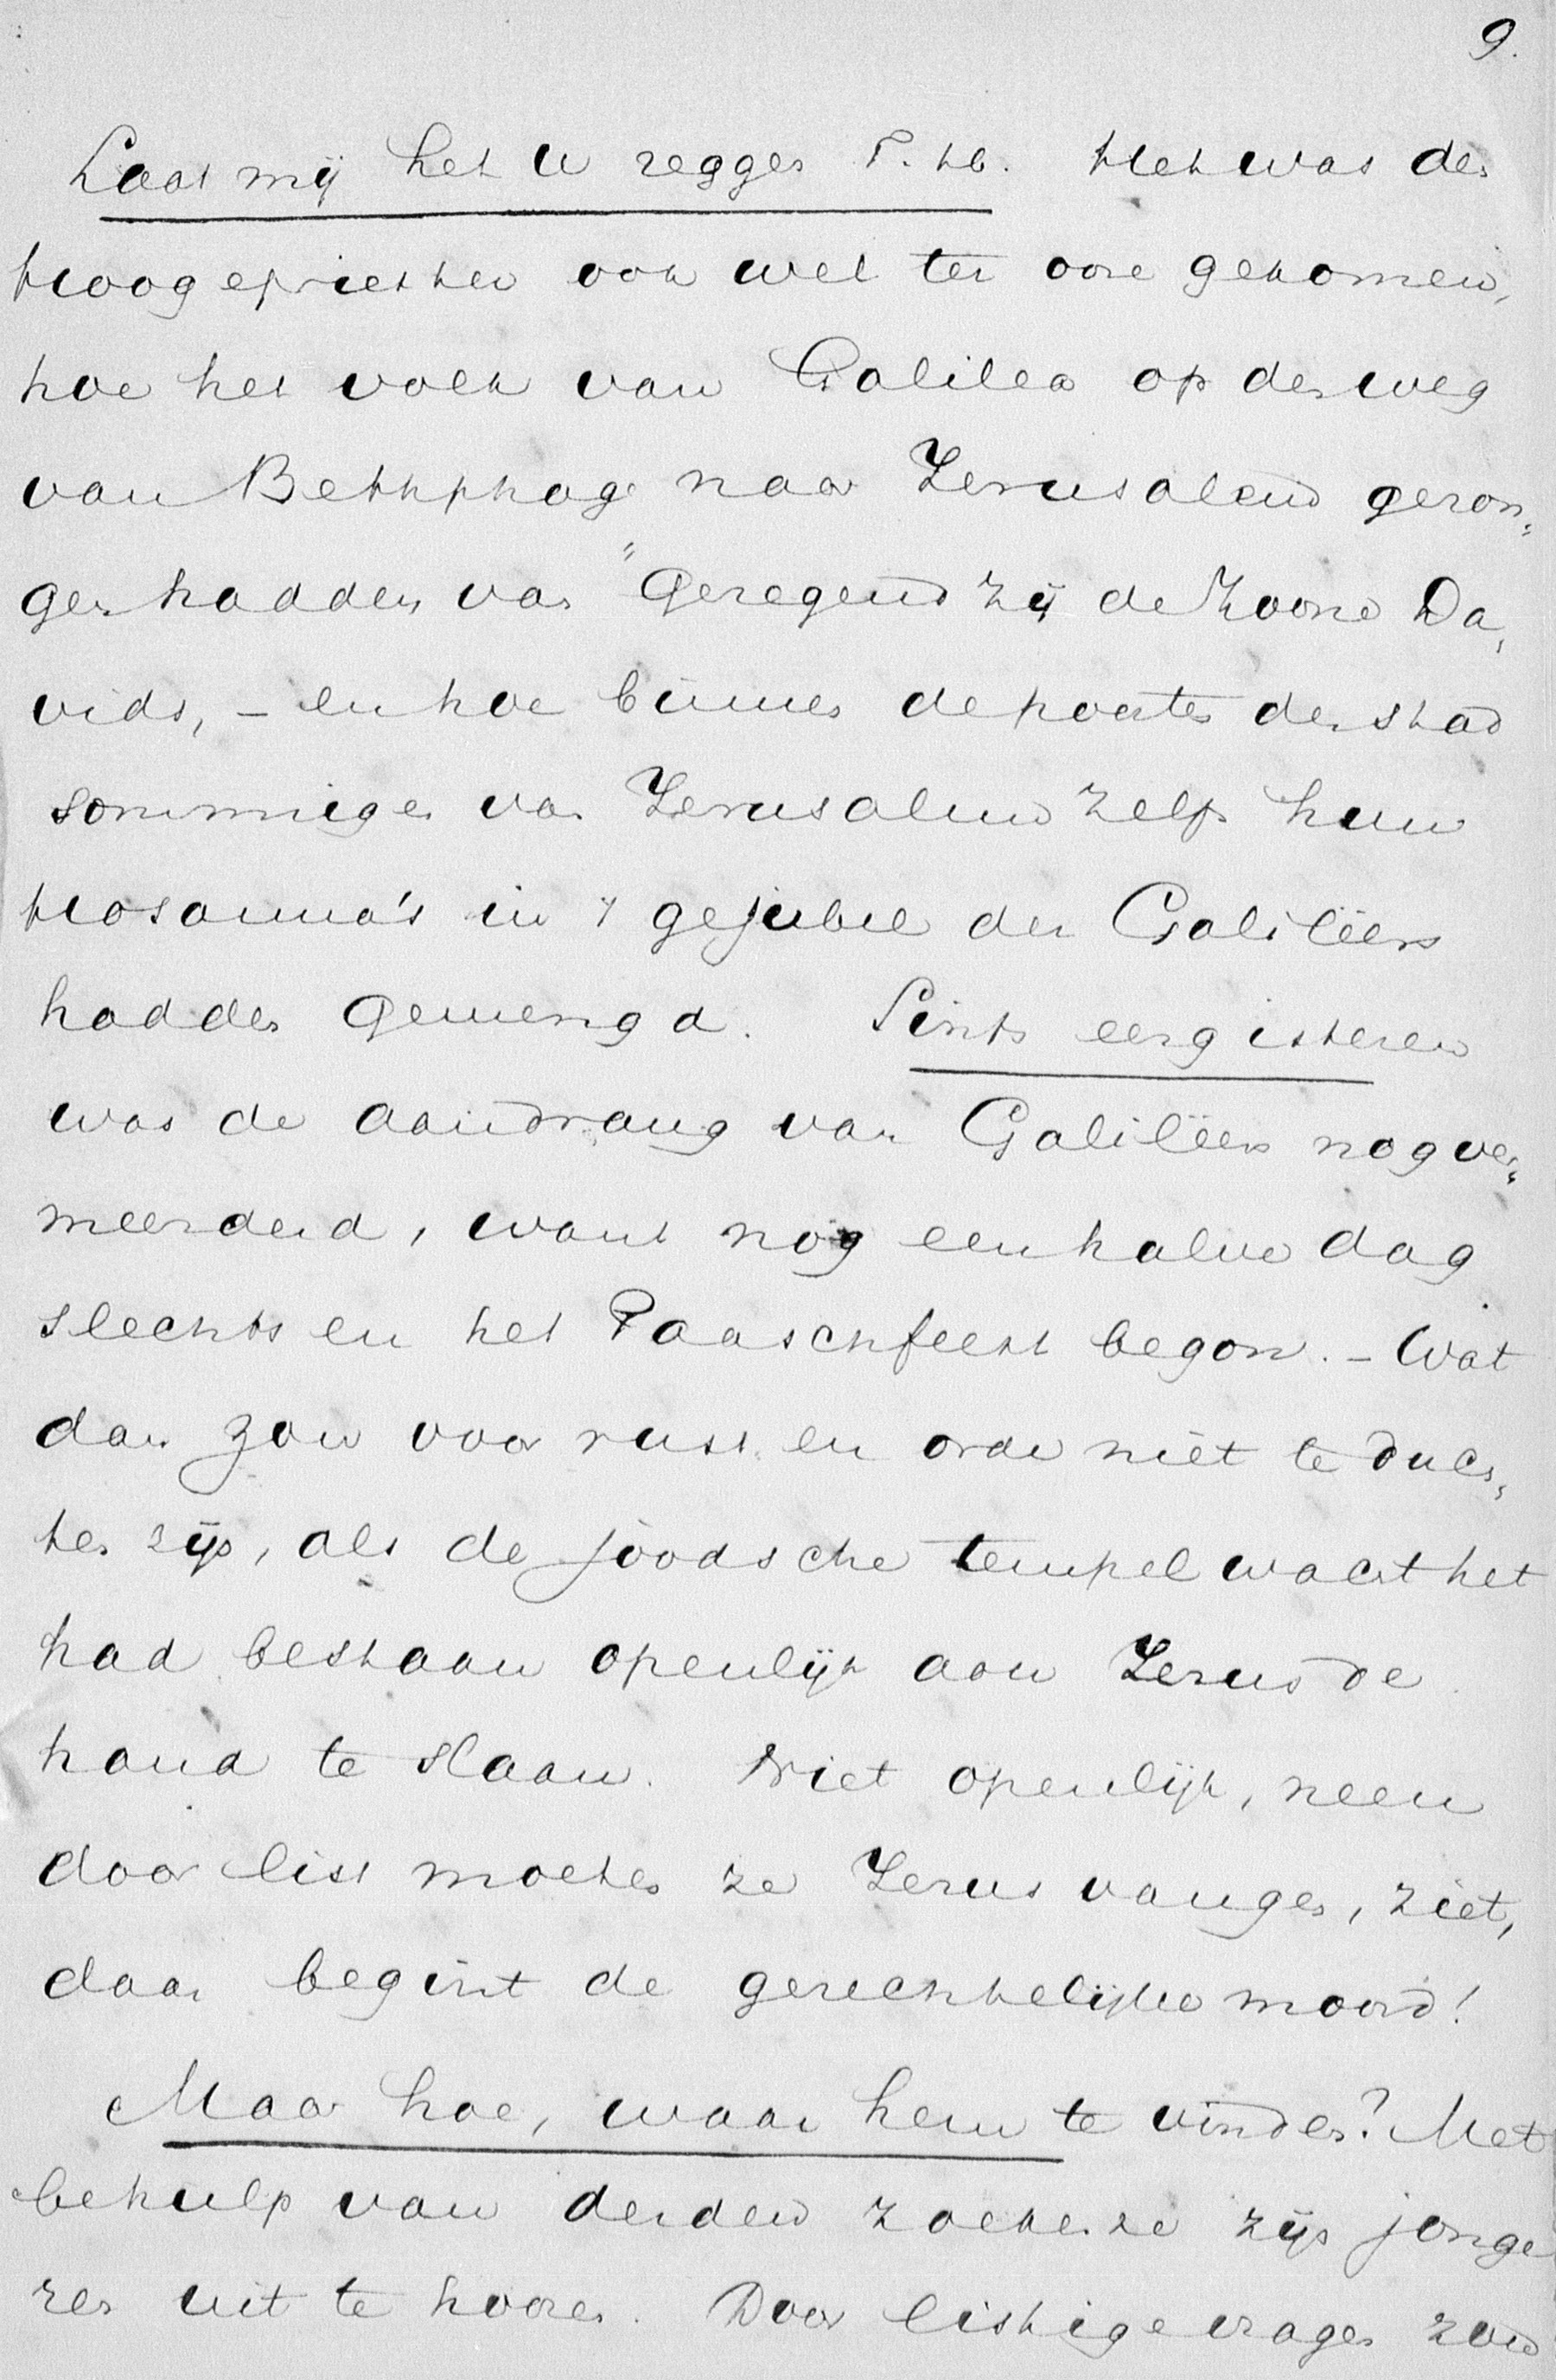 9.
Laat mij het U zeggen T. H.. Het was den
Hoogepriester ook wel ter oore gekomen,
hoe het volk van Galilea op den weg
van Bethphage naar Jeruzalem gezon„
gen hadden van "Gezegend zij de Zoone Da„
vids, – en hoe binnen de poorten der stad
sommigen van Jeruzalem zelfs hun
Hosanna's in 't gejubel der Galileërs
hadden gemengd. Sints eergisteren
was de aandrang van Galileërs nog ver„
meerderd, want nog een halve dag
slechts en het Paaschfeest begon. – Wat
dan zou voor rust en orde niet te duch„
ten zijn, als de joodsche tempelwacht het
had bestaan openlijk aan Jezus de
hand te slaan. Niet openlijk, neen
door list moeten ze Jezus vangen, ziet,
daar begint de gerechtelijke moord!
Maar hoe, waar hem te vinden? Met
behulp van derden zoeken ze zijn jonge
ren uit te hooren. Door listige vragen zoud